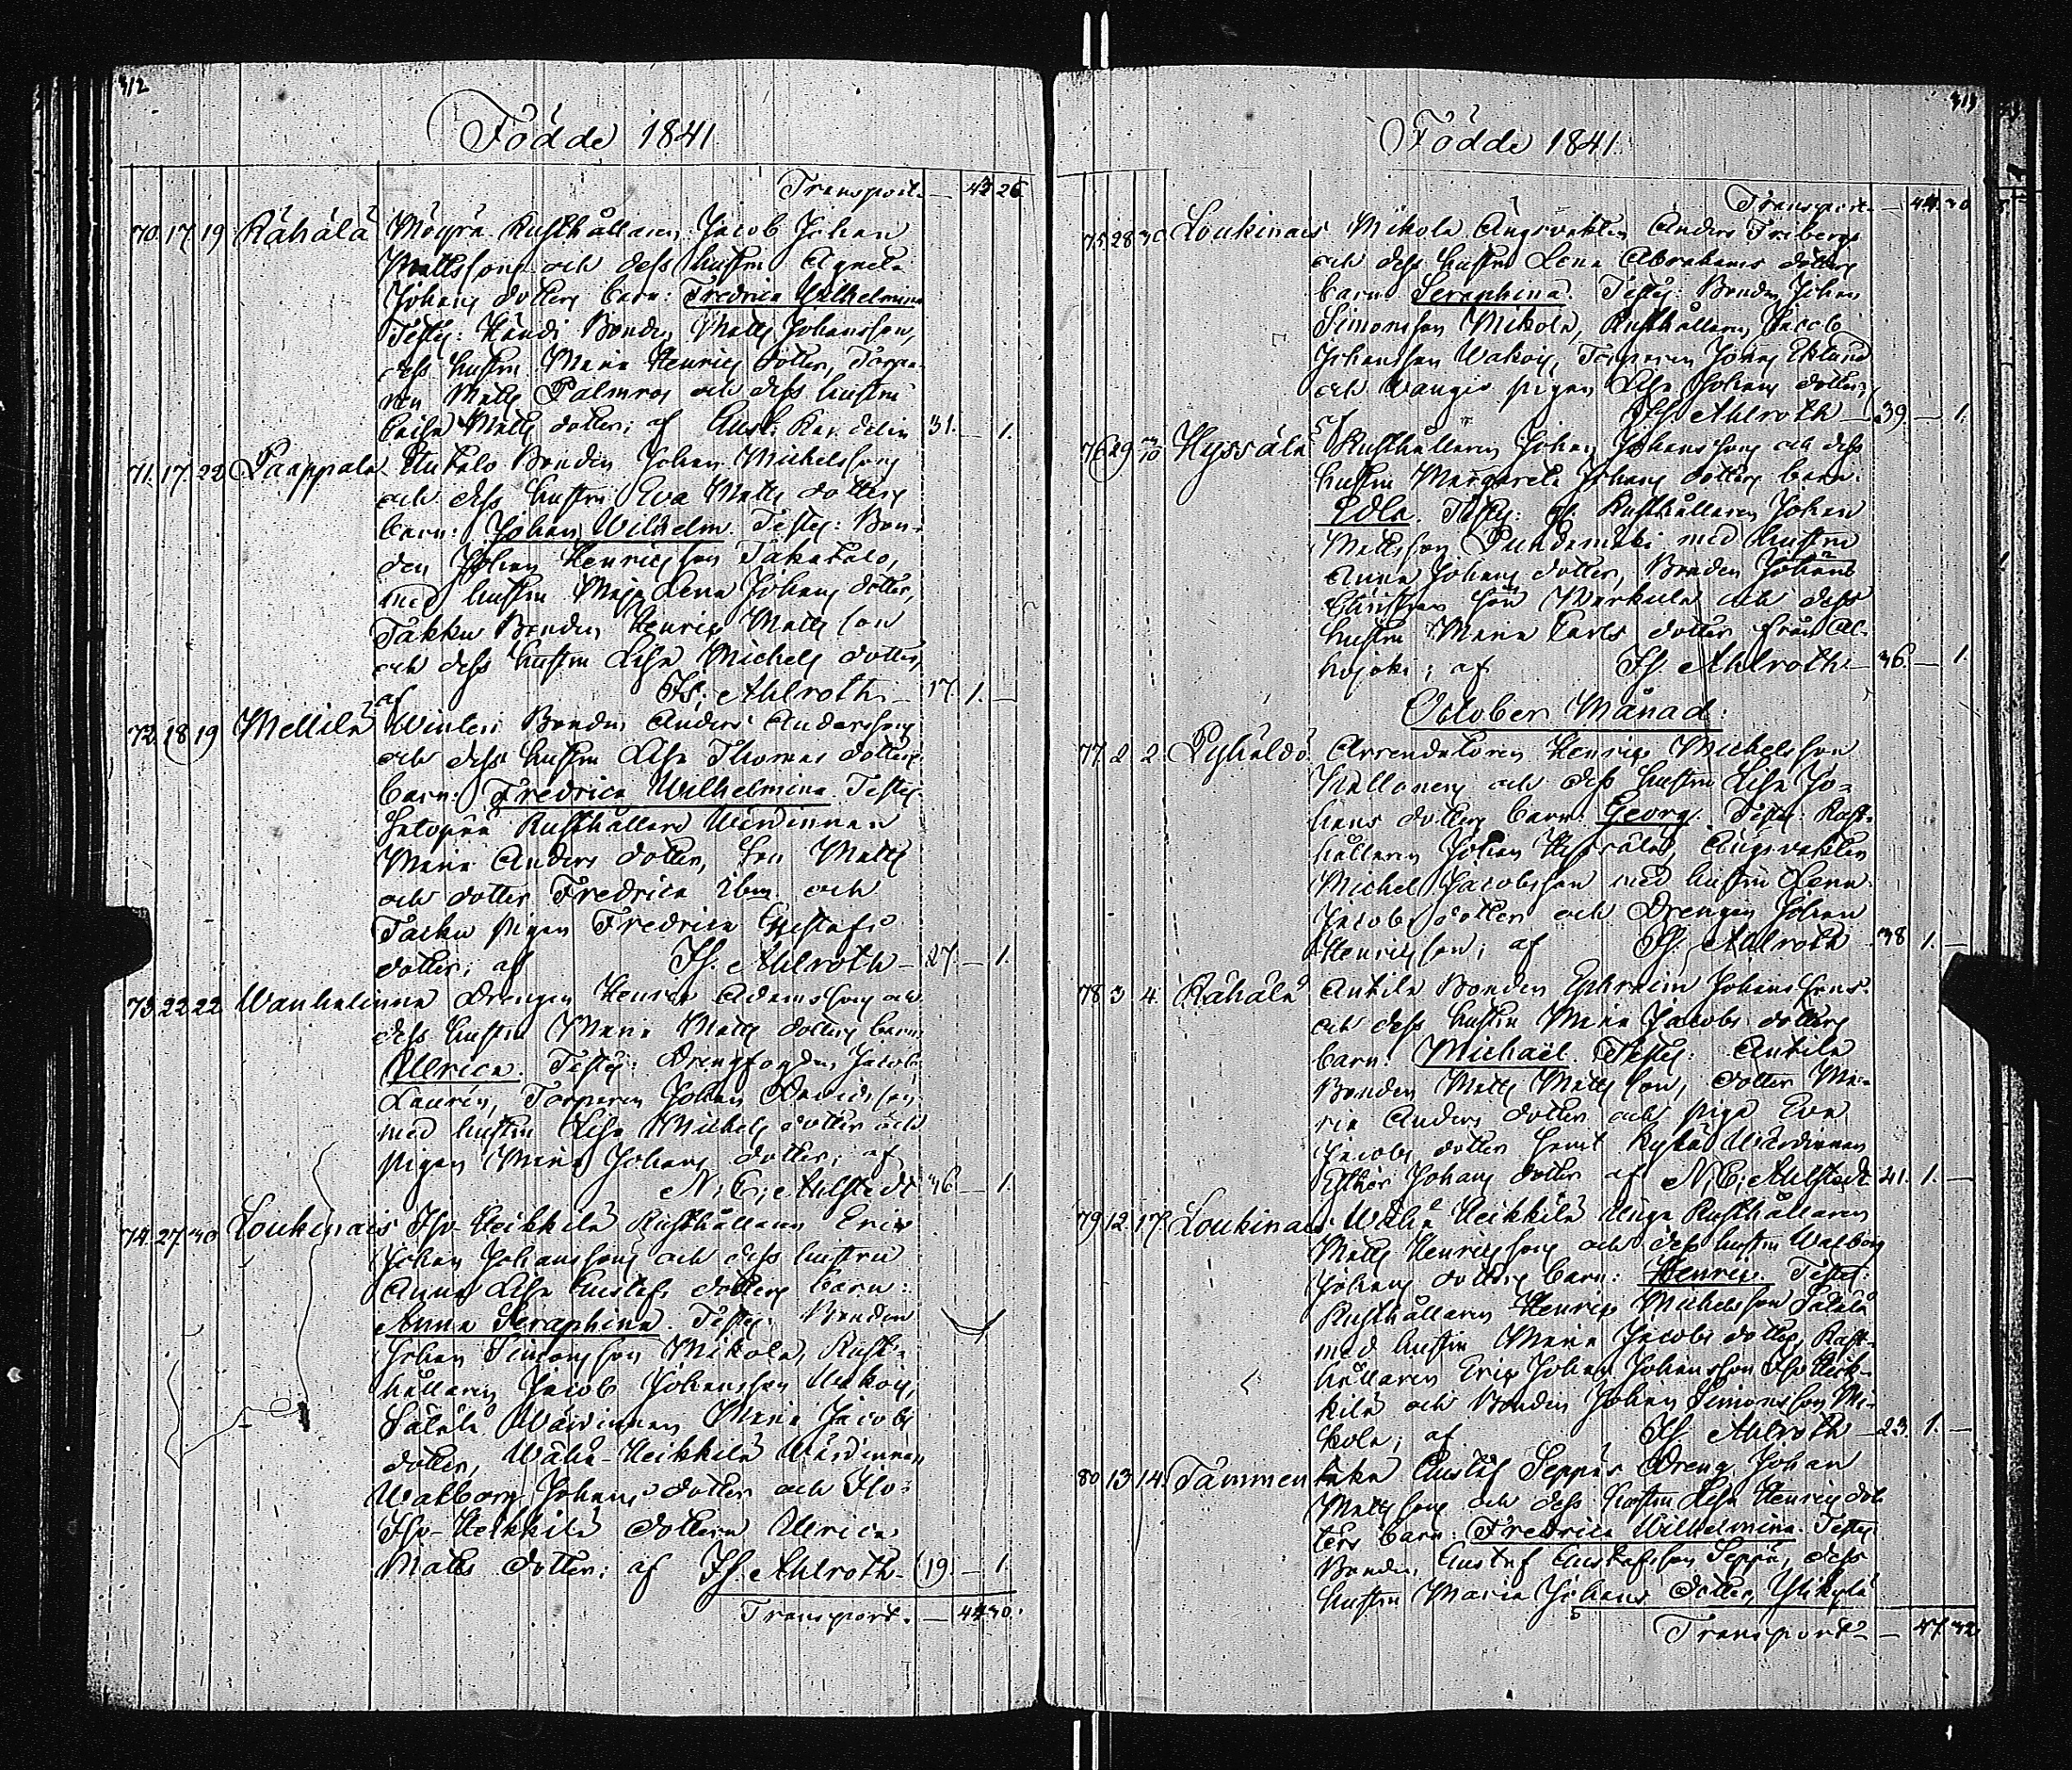 312
Födde 1841
Transport. — 43 26
70. 17. 19. Rähälä Möyrä Rusthållaren Jacob Johan
Mattssons och dess hustru Agneta
Johans dotters barn: Fredrica Wilhelmina
Testes: Händi Bonden Matts Johansson,
dess hustru Maria Henrics dotter, Torpa-
ren Matts Palmros och dess hustru
Caisa Matts dotter; af 31. — 1.
71. 17. 22 Paappala Bonden Johan Michelssons
och dess hustru Eva Matts dotters
barn: Johan Wilhelm. Testes: Bon-
den Johan Henricsson Takatalo,
med hustru Maja Lena Johans dotter,
Takku Bonden Henric Matts son
och dess hustru Lisa Michels dotter,
af Is. Ahlroth — 17. 1. —
72. 18 19 Mellilä Winteri Bonden Anders Anderssons
och dess hustru Lisa Thomas dotters
barn: Fredrica Wilhelmina. Testes:
Rusthållare Wärdinnan
Maria Anders dotter, son Matts
och dotter Fredrica ibm och
pigan Fredrica Gustafs
dotter; af Is. Ahlroth — 27. — 1.
73. 22 22 Wanhalinna Drengen Henric Adamssons och
dess hustru Maria Matts dotters barn
Ulrica. Testes: Drengfogden Jacob
Laurén, Torparen Johan Davidsson
med hustru Lisa Michels dotter och
pigan Maria Johans dotter; af
N. C. Ahlstedt 36. — 1.
74. 27. 30 Loukinais Iso Heikkilä Rusthållaren Eric
Johan Johanssons och dess hustru
Anna Lisa Gustafs dotters barn:
Anna Seraphina. Testes: Bonden
Johan Simonsson Mikola, Rust-
hållaren Jacob Johansson Wakois,
Wärdinnan Maria Jacobs
dotter, Wähä-Heikkilä Wärdinnan
Walborg Johans dotter och Iso-
Iso-Heikkilä dottern Ulrica
Matts dotter; af Is. Ahlroth — 19. — 1.
Transport. — 44 30.
313
Födde 1841.
Transport. — 44. 30
75. 28 30 Loukinais Mikola Ängsvakten Anders Fribergs
och dess hustru Lena Abrahams dotters
barn Seraphina. Testes: Bonden Johan
Simonsson Mikola, Rusthållaren Jacob
Johansson Wakois, Torparen Jonas Eklund
och pigan Lisa Johans dotter;
af Is. Ahlroth — 39. — 1.
76 29 3/10 Hyssälä Rusthållaren Johan Johanssons och dess
hustru Margareta Johans dotters barn:
Edla. Testes: Rusthållaren Johan
Mattsson med hustru
Anna Johans dotter, Bonden Johan
Christers son Markula och dess
hustru Maria Carls dotter från Al-
hojoki; af Is. Ahlroth — 36. — 1.
October Månad:
77. 2 2. Pyhäldö Arrendatorn Henric Michelsson
Kallonens och dess hustru Lisa Jo-
hans dotters barn: Georg. Testes: Rust-
hållaren Johan Hyssälä, Ängsvakten
Michel Jacobsson med hustru Lena
Jacobs dotter och Drengen Johan
Henricsson; af Is. Ahlroth 38 1. —
78 3 4. Rähälä Antila Bonden Ephraim Johanssons
och dess hustru Maria Jacobs dotters
barn: Michaël. Testes: Antila
Bonden Matts Matts son, dotter Ma-
ria Anders dotter och piga Eva
Jacobs dotter samt Wärdinnan
Esther Johans dotter af N. C. Ahlstedt 41. 1. —
79 12. 17. Loukinais Wähä Heikkilä Unga Rusthållaren
Matts Henricssons och dess hustru Walborg
Johans dotters barn: Henric. Testes:
Rusthållaren Henric Michelsson
med hustru Maria Jacobs dotter, Rust-
hållaren Eric Johan Johansson Iso Heik-
kilä och Bonden Johan Simonsson Mi-
kola; af Is. Ahlroth — 23. 1. —
80 13 14. Tammen taka Gustaf Seppäs Dreng Johan
Matts sons och dess hustru Lisa Henrics dot-
ters barn: Fredrica Wilhelmina. Testes
Bonden Gustaf Gustafsson Seppä, dess
hustru Maria Johans dotter, Ylikylä
Transport — 47 32